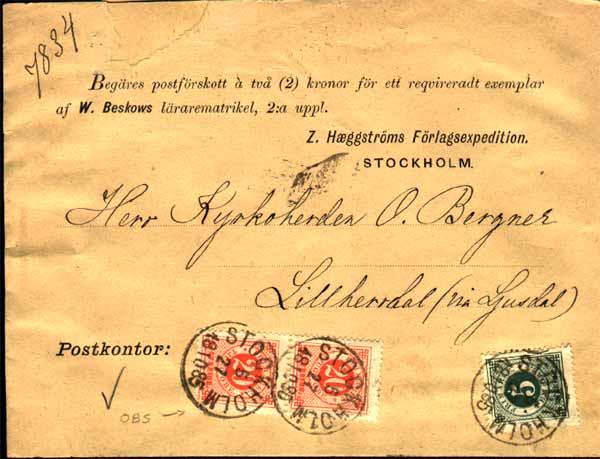 7834
Begäres postförskott à två (2) kronor för ett reqvireradt exemplar
af W. Beskows lärarematrikel, 2:a uppl.
Z. Hæggströms Förlagsexpedition.
STOCKHOLM.
Herr Kyrkoherden O. Bergner
Lillherrdal (via Ljusdal)
Postkontor:
OBS →
STOCKHOLM
20
STOCKHOLM
20
STOCKHOLM
5